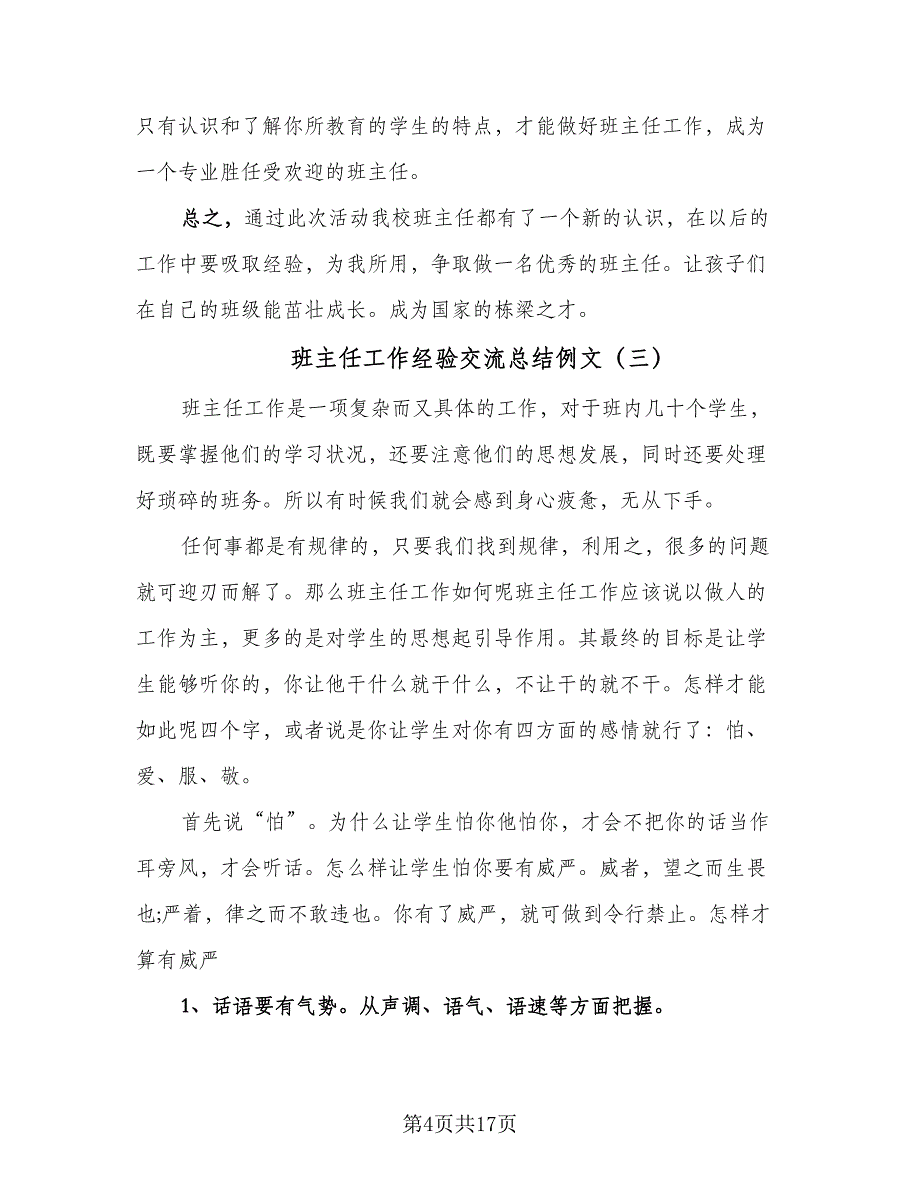 只有认识和了解你所教育的学生的特点，才能做好班主任工作，成为
一个专业胜任受欢迎的班主任。
总之，通过此次活动我校班主任都有了一个新的认识，在以后的
工作中要吸取经验，为我所用，争取做一名优秀的班主任。让孩子们
在自己的班级能茁壮成长。成为国家的栋梁之才。
班主任工作经验交流总结例文（三）
班主任工作是一项复杂而又具体的工作，对于班内几十个学生，
既要掌握他们的学习状况，还要注意他们的思想发展，同时还要处理
好琐碎的班务。所以有时候我们就会感到身心疲惫，无从下手。
任何事都是有规律的，只要我们找到规律，利用之，很多的问题
就可迎刃而解了。那么班主任工作如何呢班主任工作应该说以做人的
工作为主，更多的是对学生的思想起引导作用。其最终的目标是让学
生能够听你的，你让他干什么就干什么，不让干的就不干。怎样才能
如此呢四个字，或者说是你让学生对你有四方面的感情就行了：怕、
爱、服、敬。
首先说“怕”。为什么让学生怕你他怕你，才会不把你的话当作
耳旁风，才会听话。怎么样让学生怕你要有威严。威者，望之而生畏
也;严着，律之而不敢违也。你有了威严，就可做到令行禁止。怎样才
算有威严
1、话语要有气势。从声调、语气、语速等方面把握。
第4页共17页